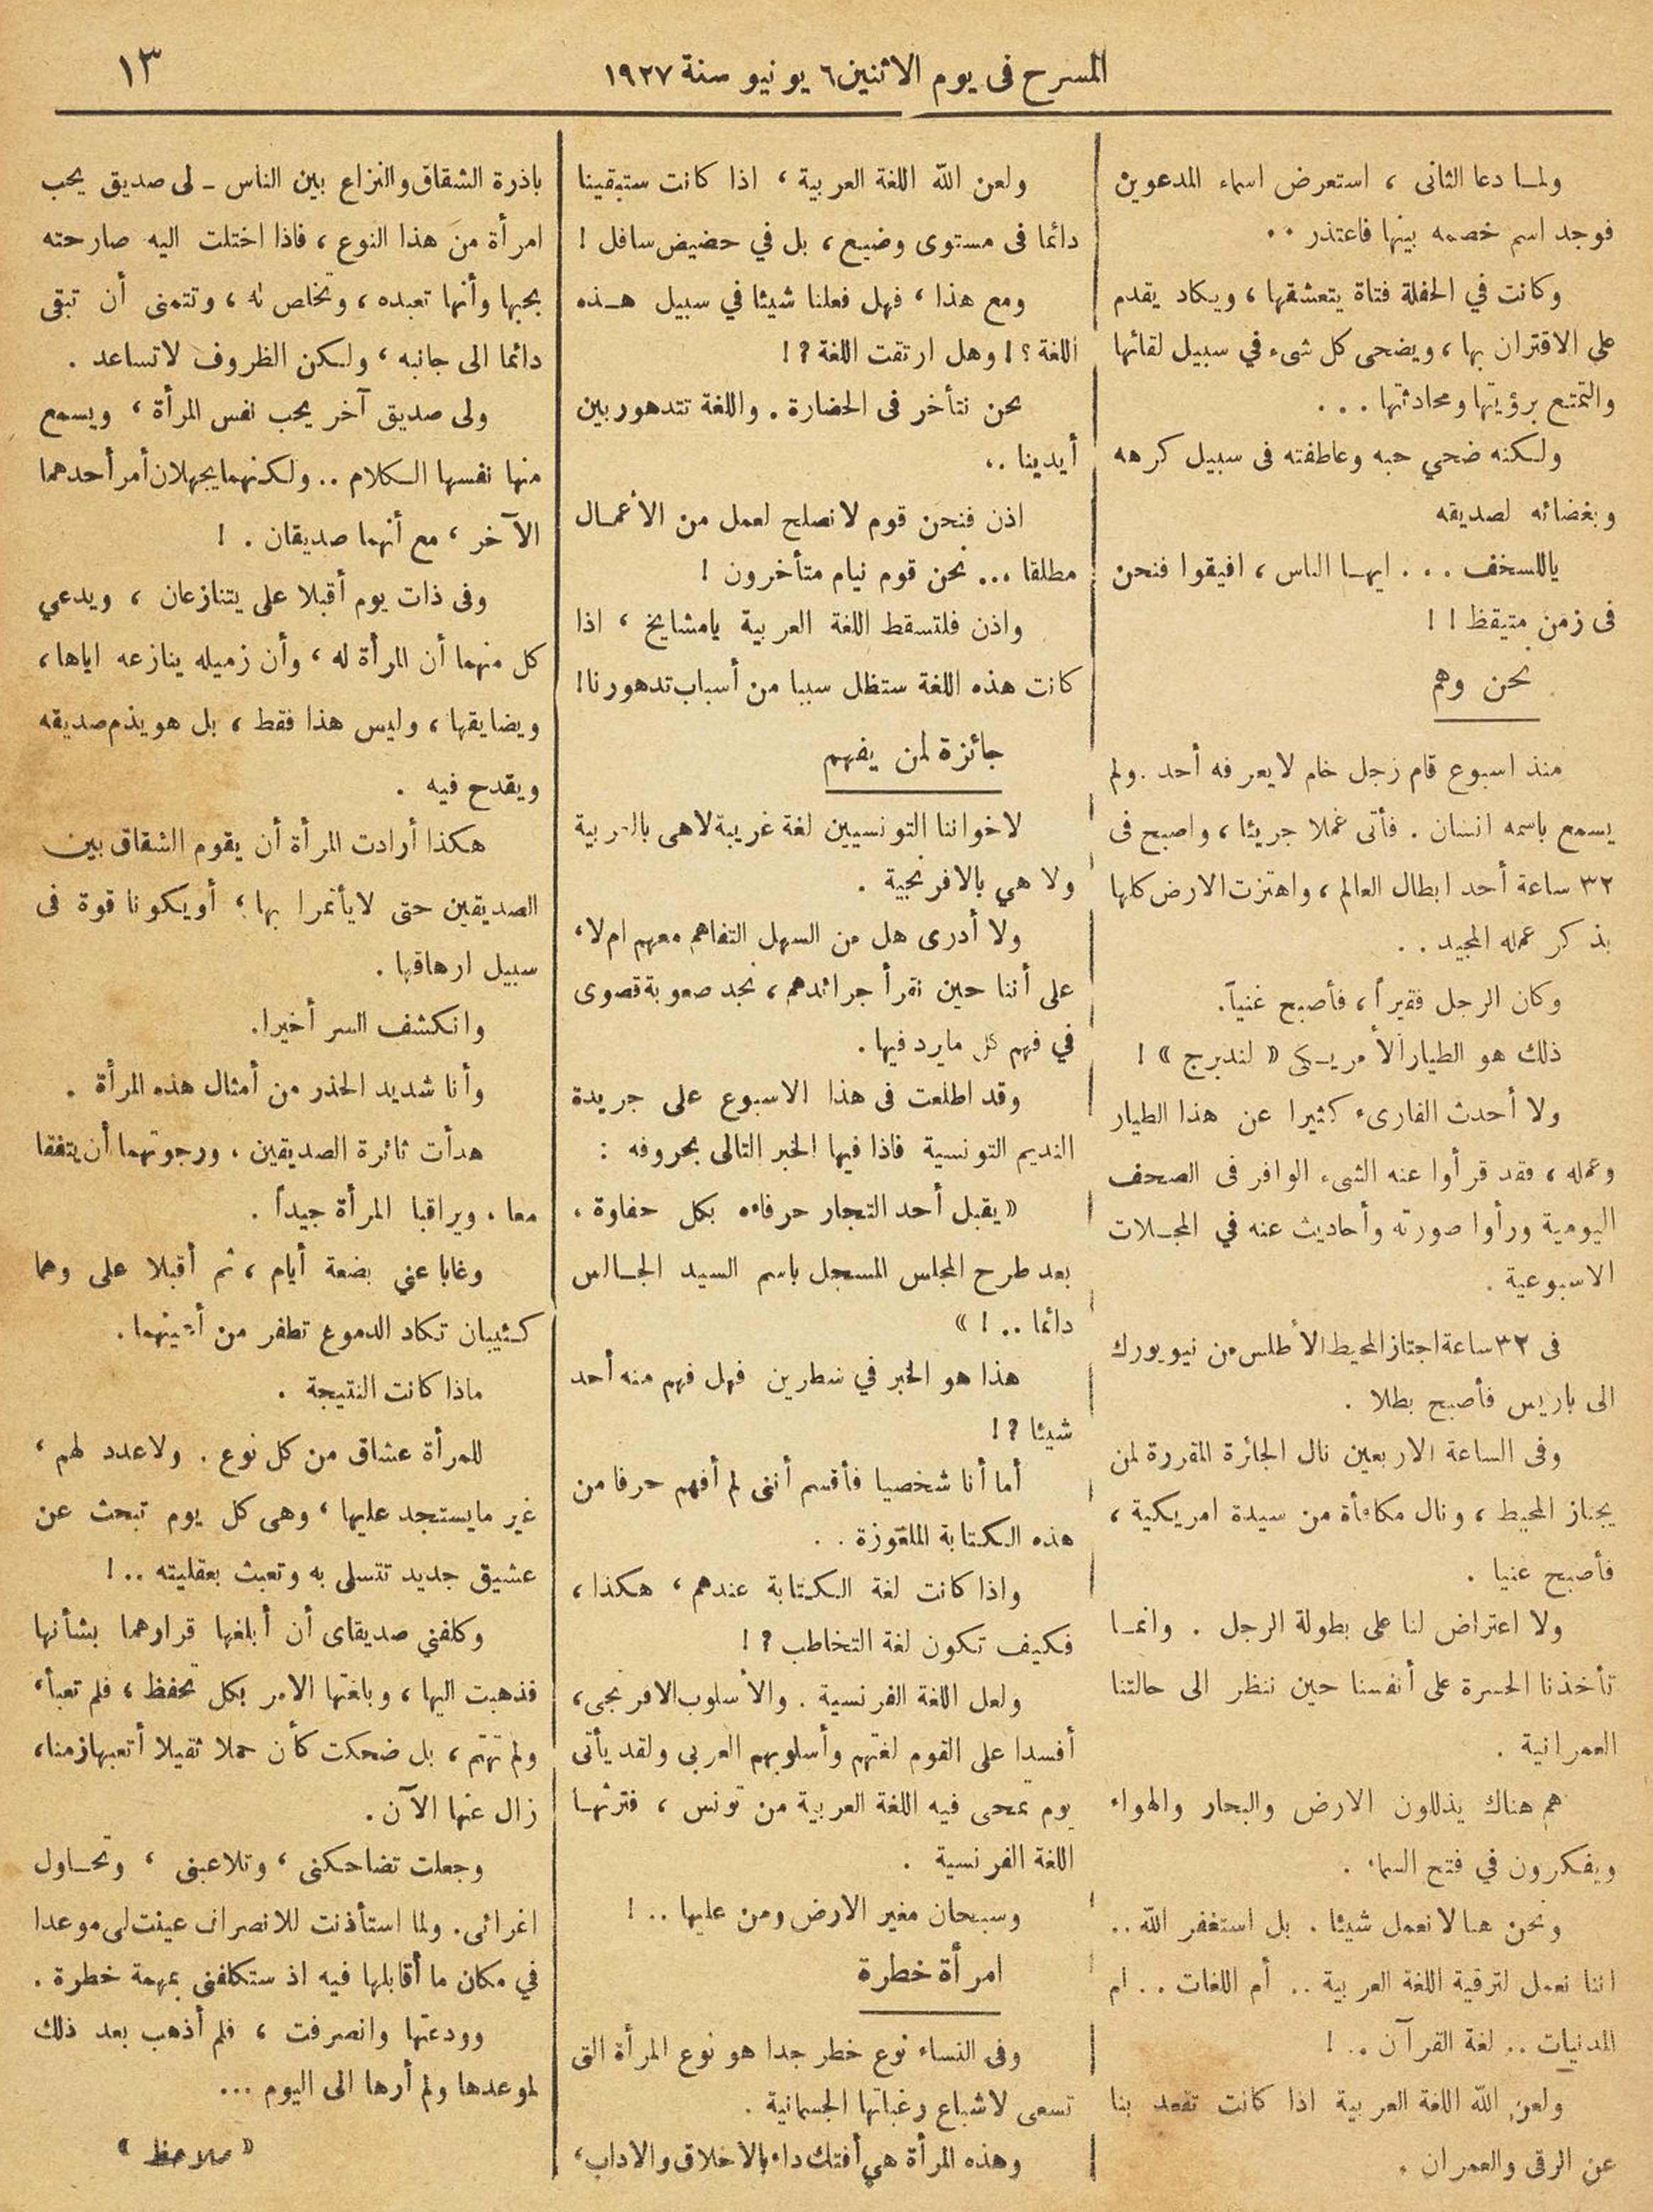 المسرح فى يوم الاثنين ٦ يونيو سنة ١٩٢٧
١٣
ولمـا دعا الثانى ، استعرض اسماء المدعوين
فوجد اسم خصمه بينها فاعتذر ..
وكانت في الحفلة فتاة يتعشقها ، ويكاد يقدم
على الاقتران بها ، ويضحى كل شىء في سبيل لقائها
والتمتع برؤيتها ومحادثتها ...
ولكنه ضحي حبه وعاطفته فى سبيل كرهه
وبغضائه لصديقه
ياللسخف ... ايهـا الناس ، افيقوا فنحن
فى زمن متيقظ ! !
نحن وهم
منذ اسبوع قام زجل خام لا يعرفه أحد . ولم
يسمع باسمه انسان . فأتى عملا جريئا ، واصبح فى
٣٢ ساعة أحد ابطال العالم ، واهتزت الارض كلها
بذكر عمله المجيد ..
وكان الرجل فقيراً ، فأصبح غنياً .
ذلك هو الطيار الأمريـكى « لندبرج » !
ولا أحدث القارىء كثيرا عن هذا الطيار
وعمله ، فقد قرأوا عنه الشىء الوافر فى الصحف
اليومية ورأوا صورته وأحاديث عنه في المجـلات
الاسبوعية .
فى ٣٢ ساعة اجتاز المحيط الأطلس من نيويورك
الى باريس فأصبح بطلا .
وفى الساعة الاربعين نال الجائزة المقررة لمن
يجتاز المحيط ، ونال مكافأة من سيدة امريكية ،
فأصبح غنيا .
ولا اعتراض لنا على بطولة الرجل . وانمـا
تأخذنا الحسرة على أنفسنا حين ننظر الى حالتنا
العمرانية .
هم هناك يذللون الارض والبحار والهواء
ويفكرون في فتح السماء .
ونحن هنا لا نعمل شيئا . بل استغفر الله ..
اننا نعمل لترقية اللغة العربية .. أم اللغات .. ام
المدنيات .. لغة القرآن .. !
ولعن الله اللغة العربية اذا كانت تقعد بنا
عن الرقى والعمران .
ولعن الله اللغة العربية ، اذا كانت ستبقينا
دائما فى مستوى وضيع ، بل في حضيض سافل !
ومع هذا ، فهل فعلنا شيئا في سبيل هـذه
اللغة ؟ ! وهل ارتقت اللغة ؟ !
نحن نتأخر فى الحضارة . واللغة تتدهور بين
أيدينا ..
اذن فنحن قوم لا نصلح لعمل من الأعمـال
مطلقا ... نحن قوم نيام متأخرون !
واذن فلتسقط اللغة العربية يامشايخ ، اذا
كانت هذه اللغة ستظل سببا من أسباب تدهورنا !
جائزة لمن يفهم
لاخواننا التونسيين لغة غريبة لاهى بالعربية
ولا هي بالافرنجية .
ولا أدرى هل من السهل التفاهم معهم ام لا ،
على أننا حين نقرأ جرائدهم ، نجد صعوبة قصوى
في فهم كل مايرد فيها .
وقد اطلعت فى هذا الاسبوع على جريدة
النديم التونسية فاذا فيها الخبر التالى بحروفه :
« يقبل أحد التجار حرفاءه بكل حفاوة .
بعد طرح المجلس المسجل باسم السيد الجـالس
دائما .. ! »
هذا هو الخبر في سطرين فهل فهم منه أحد
شيئا ؟ !
أما أنا شخصيا فأقسم أننى لم أفهم حرفا من
هذه الكتابة الملغوزة ..
واذا كانت لغة الكتابة عندهم ، هكذا ،
فكيف تكون لغة التخاطب ؟ !
ولعل اللغة الفرنسية . والأسلوب الافرنجى ،
أفسدا على القوم لغتهم وأسلوبهم العربى ولقد يأتى
يوم تمحى فيه اللغة العربية من تونس ، فترثهـا
اللغة الفرنسية .
وسبحان مغير الارض ومن عليها .. !
امرأة خطرة
وفى النساء نوع خطر جدا هو نوع المرأة التى
تسعى لاشباع رغباتها الجسمانية .
وهذه المرأة هي أفتك داء بالاخلاق والاداب ،
باذرة الشقاق والنزاع بين الناس ـ لى صديق يحب
امرأة من هذا النوع ، فاذا اختلت اليه صارحته
بحبها وأنها تعبده ، وتخلص له ، وتتمنى أن تبقى
دائما الى جانبه ، ولكن الظروف لا تساعد .
ولى صديق آخر يحب نفس المرأة ، ويسمع
منها نفسها الكلام .. ولكنهما يجهلان أمر أحدهما
الآخر ، مع أنهما صديقان . !
وفى ذات يوم أقبلا على يتنازعان ، ويدعي
كل منهما أن المرأة له ، وأن زميله ينازعه اياها ،
ويضايقها ، وليس هذا فقط ، بل هو يذم صديقه
ويقدح فيه .
هكذا أرادت المرأة أن يقوم الشقاق بين
الصديقين حتى لا يأتمرا بها ، أو يكونا قوة فى
سبيل ارهاقها .
وانكشف السر أخيرا .
وأنا شديد الحذر من أمثال هذه المرأة .
هدأت ثائرة الصديقين . ورجوتهما أن يتفقا
معا . ويراقبا المرأة جيداً .
وغابا عني بضعة أيام ، ثم أقبلا على وهما
كئيبان تكاد الدموع تطفر من أعينهما .
ماذا كانت النتيجة .
للمرأة عشاق من كل نوع . ولا عدد لهم ،
غير مايستجد عليها ، وهى كل يوم تبحث عن
عشيق جديد تتسلى به وتعبث بعقليته .. !
وكلفني صديقاى أن أبلغها قرارهما بشأنها
فذهبت اليها ، وبلغتها الامر بكل تحفظ ، فلم تعبأ ،
ولم تهتم ، بل ضحكت كأن حملا ثقيلا أتعبها زمنا ،
زال عنها الآن .
وجعلت تضاحكنى ، وتلاعبنى ، وتحـاول
اغرائى . ولما استأذنت للانصراف عينت لى موعدا
في مكان ما أقابلها فيه اذ ستكلفنى بمهمة خطرة .
وودعتها وانصرفت ، فلم أذهب بعد ذلك
لموعدها ولم أرها الى اليوم ...
« ملاحظ »